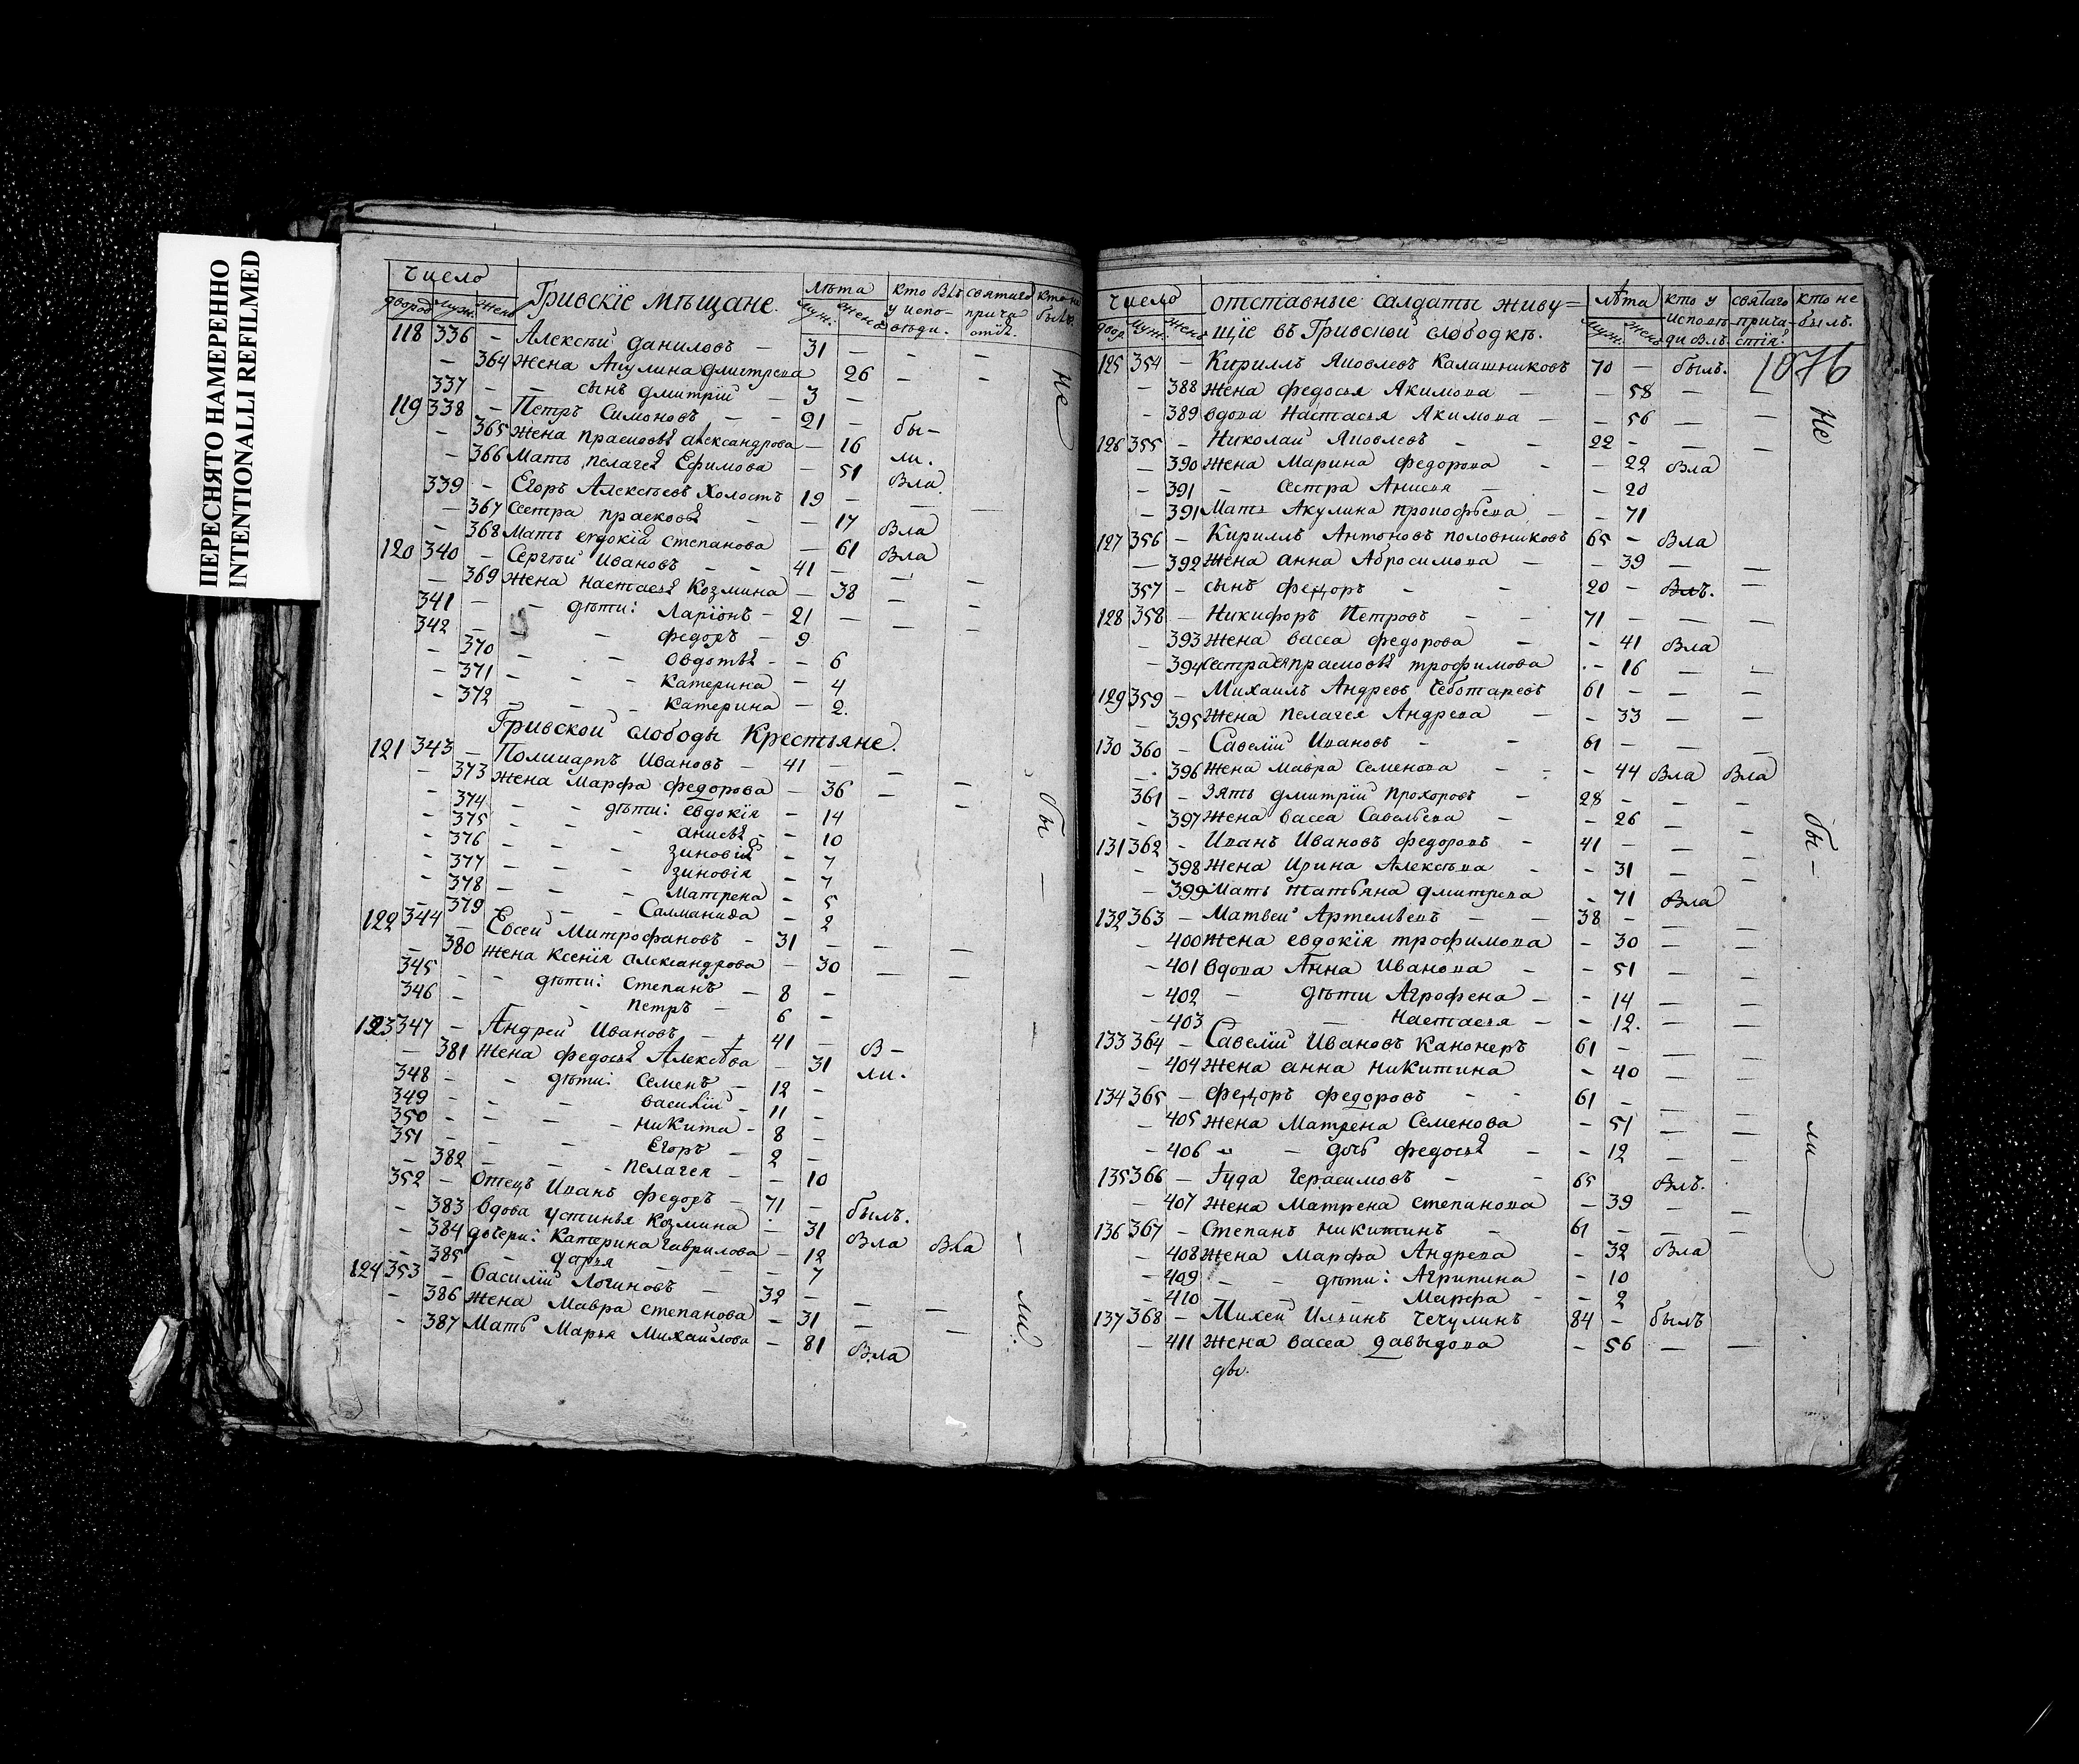 ПЕРЕСНЯТО НАМЕРЕННО
INTENTIONALLI REFILMED
Число Гривскіе Мѣщане. Лѣта кто былъ у испо- вѣди. святаго прича стія. кто не былъ.
двород муж. жен муж: женс
118 336 - Алексѣй даниловъ - 31 - - -
- 364 жена Акулина дмитрева 26 - -
337 - - сынъ дмитрій - 3 - не
119 338 - Петръ Симоновъ - - 21 - бы-
- 365 жена прасковья александрова - 16 ли.
- 366 Мать пелагея Ефимова - 51 Вла
339 - Егоръ Алексѣевъ холостъ 19 - - -
- 367 Сестра прасковья - - 17 Вла
- 368 Мать евдокія степанова - 61 Вла
120 340 - Сергѣй Ивановъ - - 41 - - -
- 369 жена настасья Козмина - 38 - -
341 - - дѣти: Ларіонъ - 21 - - -
342 - - - федоръ - 9
- 370 - - Овдотья - - 6
- 371 - - - катерина - 4
- 372 - - - катерина - 2.
Гривской слободы Крестьяне.
121 343 - Поликарпъ Ивановъ - 41 - - -
- 373 жена Марфа федорова - 36 - -
- 374 - - дѣти: евдокія - 14
- 375 - - - анисья - - 10
- 376 - - - зиновія - 7
- 377 - - - зиновія - 7
- 378 - - - Матрена - 5
- 379 - - - Саламанида - 2
122 344 - Евсей Митрофановъ - 31 - - -
- 380 жена Ксенія александрова - 30 - -
345 - - дѣти: Степанъ - 8 -
346 - - петръ - 6 -
123 347 - Андрей Ивановъ - - 41 - в -
- 381 жена федосья Алексѣва - 31 ли.
348 - - дѣти: Семенъ - 12 -
349 - - - василій - 11 -
350 - - - никита - 8 -
351 - - - Егоръ - 2 -
- 382 - - - пелагея - - 10
352 - Отецъ Иванъ федоръ - 71 - былъ.
- 383 вдова устинья козмина - 31 Вла Вла
- 384 дочери: Катерина гаврилова - 12
- 385 - дарья - - - 7
124 353 - василій Логиновъ - 32 - - -
- 386 жена Мавра степанова - 31 - -
- 387 Мать Марья Михайлова - 81 Вла
бы - - - ли:
Число отставные салдаты живу= Лѣта кто у исповѣ- ди былъ. святаго прича- стія. кто не былъ.
двор. муж. женс щіе въ Гривской слободкѣ. муж. женс
125 354 - Кириллъ Яковлевъ Калашниковъ 70 - былъ. 1076
- 388 жена федосья Акимова - - 58 - -
- 389 вдова Настасья Акимова - - 56 - - Не
126 355 - Николай Яковлевъ - - 22 - - -
- 390 жена Марина федорова - - 22 Вла
- 391 - сестра Анисья - - 20
- 391 Мать Акулина прокофьева - - 71
127 356 - Кириллъ Антоновъ половниковъ 65 - Вла
- 392 жена анна Абросимова - - 39 - -
357 - сынъ федоръ - - 20 - Влъ. -
128 358 - Никифоръ Петровъ - - 71 - - -
- 393 жена васса федорова - - 41 Вла
- 394 сестра прасковья трофимова - - 16 - -
129 359 - Михаилъ Андревъ Чеботаревъ 61 - - -
- 395 жена пелагея Андрева - - 33 - -
130 360 - Савелій Ивановъ - - 61 - - -
- 396 жена мавра Семенова - - - 44 Вла Вла
361 - зять дмитрій прохоровъ - 28 - - -
- 397 жена васса Савельева - - 26 - - бы -
131 362 - Иванъ Ивановъ федоровъ - 41 - - -
- 398 жена Ирина Алексѣва - - 31 - -
- 399 Мать татьяна дмитрева - 71 Вла
132 363 - Матвей Артемьевъ - - 38 - - -
- 400 жена евдокія трофимова - 30 - -
- 401 вдова Анна Иванова - - 51 - -
- 402 - дѣти Агрофена - - 14 - -
- 403 - настасья - - 12. - -
133 364 - Савелій Ивановъ Канонеръ 61 - - -
- 404 жена анна никитина - 40 - -
134 365 - федоръ федоровъ - - 61 - - -
- 405 жена Матрена Семенова - 51 - -
- 406 - - дочь федосья - - 12 - - ли
135 366 - Гуда Герасимовъ - - 65 Влъ.
- 407 жена Матрена степанова - 39 - -
136 367 - Степанъ никитинъ - 61 - - -
- 408 жена Марфа Андрева - 32 Вла
- 409 - - дѣти: Агрипина - 10
- 410 - Марфа - - 2
137 368 - Михей Ильинъ Чечулинъ 84 - былъ
- 411 жена васса давыдова - 56 - -
двѣ.